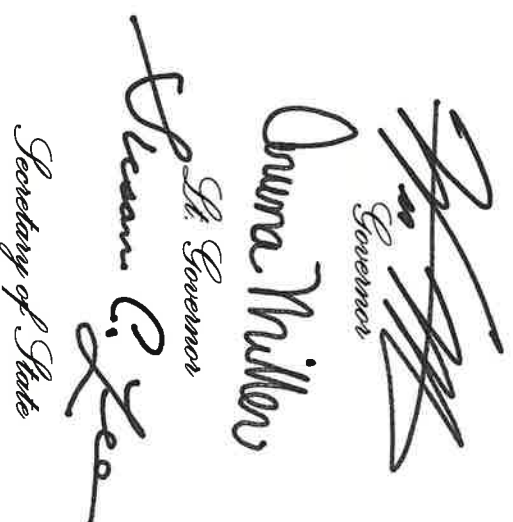 Governor
Aruna Miller
Lt. Governor
Susan C. Lee
Secretary of State